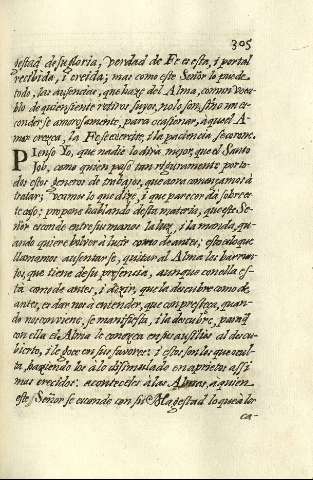 305
gestad de su gloria, verdad de Fe es esta, i portal
recibida, i creida; mas como este Señor lo puede
todo, las ausencias, que haze del Alma, con un voca
blo de quien siente retiros suyos, no lo son, sino un es
conderse amorosamente, para ocasionar, à que el A-
mor crezca, la Fe se exercite, i la paciencia se corone.
PIenso Yo, que nadie lo dirà mejor, que el Santo
Job, como quien pasò tan rigurosamente por to-
dos estos generos de trabajos, que aora comenzamos à
tratar; veamos lo que dize, i que parecer da sobre es
te caso: propone hablando desta materia, que este Se-
ñor esconde entre sus manos la luz, i la manda, qu-
ando quiere bolver à lucir como de antes; esto es lo que
llamamos ausentarse, quitar al Alma los barrun-
tos, que tiene de su presencia, aunque con ella es-
tà como de antes, i dezir, que la descubre como de
antes, es dar nos à entender, que con presteza, quan-
do nos conviene, se manifiesta, i la descubre, paraq̃
con ella el Alma le conozca en sus auxilios al descu-
bierto, i le goce en sus favores: i estos son los que ocul-
ta, haziendolos à lo dissimulado en aprietos assi
mas crecidos: aconteceles à las Almas, a quien
este Señor se esconde con su Magestad lo que à los
ca-